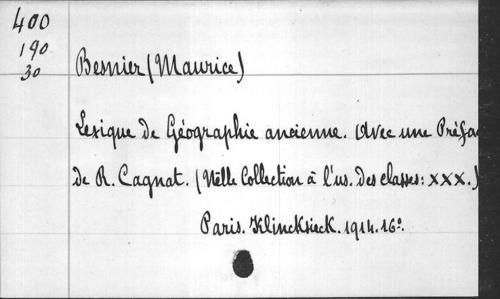 400
190
30
Besnier (Maurice)
Lexique de Géographie ancienne. Avec une Préfac
de R. Cagnat. (Nelle Collection à l'us. des classes: XXX.)
Paris. Klincksieck. 1914. 16°.